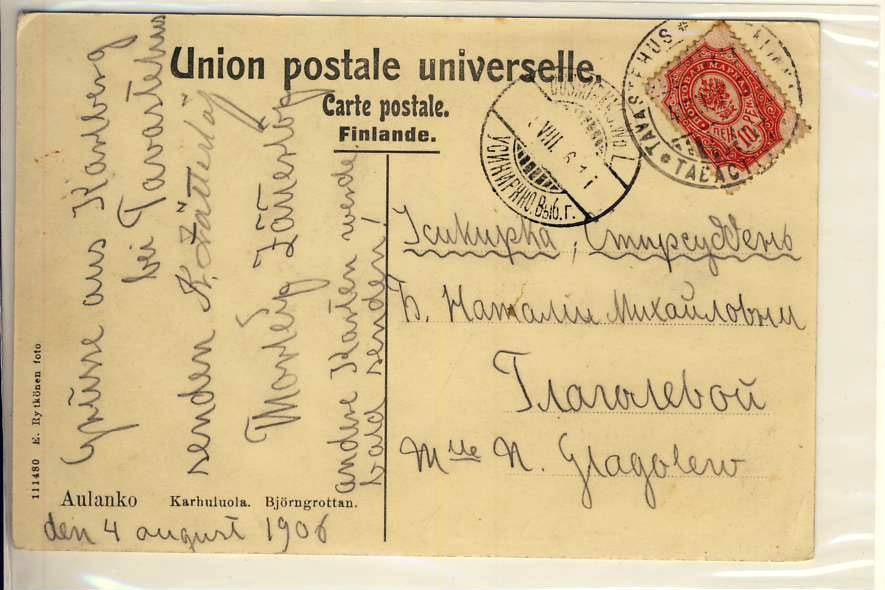 Union postale universelle.
Carte postale.
Finlande.
Grüsse aus Karlberg
bei Tavastehus
senden K. Zätterlöf
Zätterlöf
andere Karten werde
bald senden!
TAVASTEHUS
ТАВАСТ
ПОЧТОВАЯ МАРКА
10
УСИКИРККО. Выб. г.
VIII 6
Усикирка, Стирсудденъ
Наталіи Михайловны
Глаголевой
Mlle N. Glagolew
111480 E. Rytkönen foto
Aulanko Karhuluola. Björngrottan.
den 4 august 1906